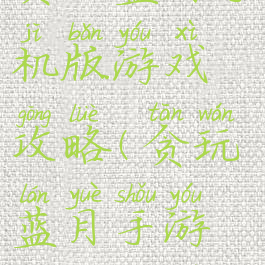 jī bǎn yóu xì
机版游戏
gōng lüè tān wán
攻略(贪玩
lán yuè shǒu yóu
蓝月手游